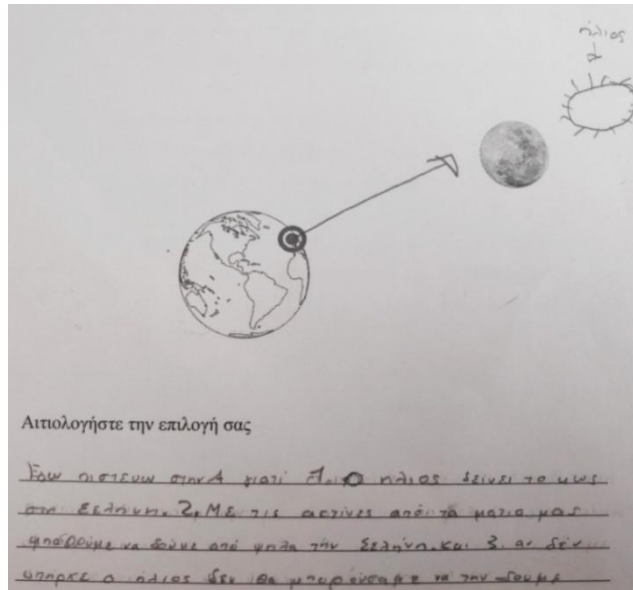 ήλιος
Αιτιολογήστε την επιλογή σας
Εγω πιστευω στην Α γιατί 1. Ο ηλιος δείνει το φως
στη Σελήνη. 2. Με τις ακτίνες από τα ματια μας
μπορούμε να δούμε από ψηλα την Σελήνη. Και 3. αν δεν
υπηρχε ο ήλιος δεν θα μπορούσαμε να την δουμε